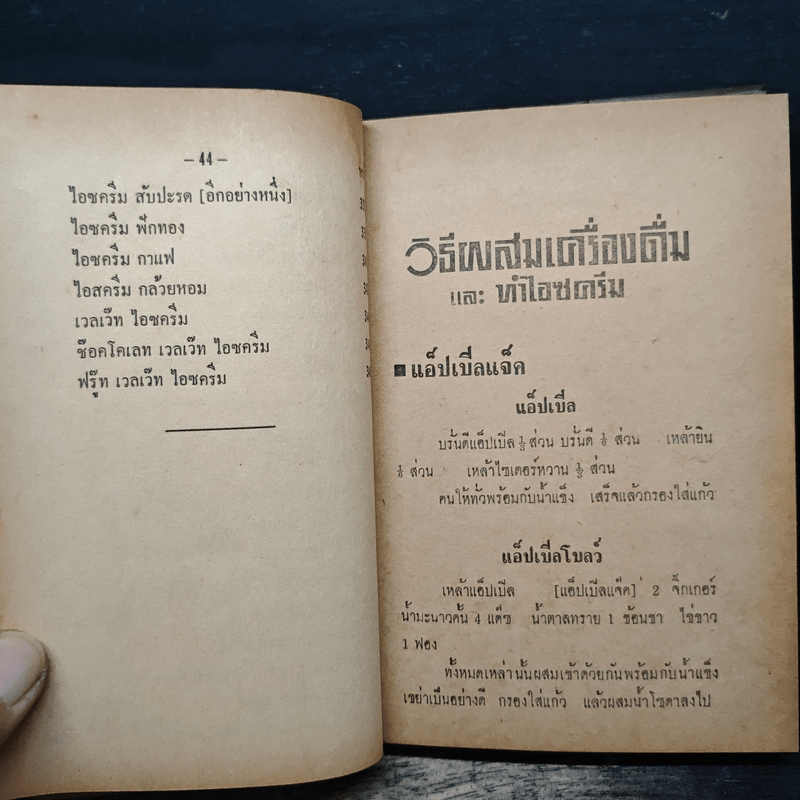 – 44 –
ไอซครีม สับปะรด [อีกอย่างหนึ่ง]
ไอซครีม ฟักทอง
ไอซครีม กาแฟ
ไอสครีม กล้วยหอม
เวลเว๊ท ไอซครีม
ช๊อคโคเลท เวลเว๊ท ไอซครีม
ฟรู๊ท เวลเว๊ท ไอซครีม
วิธีผสมเครื่องดื่ม
และ ทำไอซครีม
■ แอ็ปเบีลแจ็ค
แอ็ปเบี่ล
บรั่นดีแอ็ปเบีล ส่วน บรั่นดี ส่วน เหล้ายิน
ส่วน เหล้าไซเดอร์หวาน ส่วน
คนให้ทั่วพร้อมกับน้ำแข็ง เสร็จแล้วกรองใส่แก้ว
แอ็ปเบีลโบลว์
เหล้าแอ็ปเบีล [แอ็ปเบีลแจ๊ค] 2 จิ๊กเกอร์
น้ำมะนาวคั้น 4 แด๊ซ น้ำตาลทราย 1 ช้อนชา ไข่ขาว
1 ฟอง
ทั้งหมดเหล่านั้นผสมเข้าด้วยกันพร้อมกับน้ำแข็ง
เขย่าเป็นอย่างดี กรองใส่แก้ว แล้วผสมน้ำโซดาลงไป